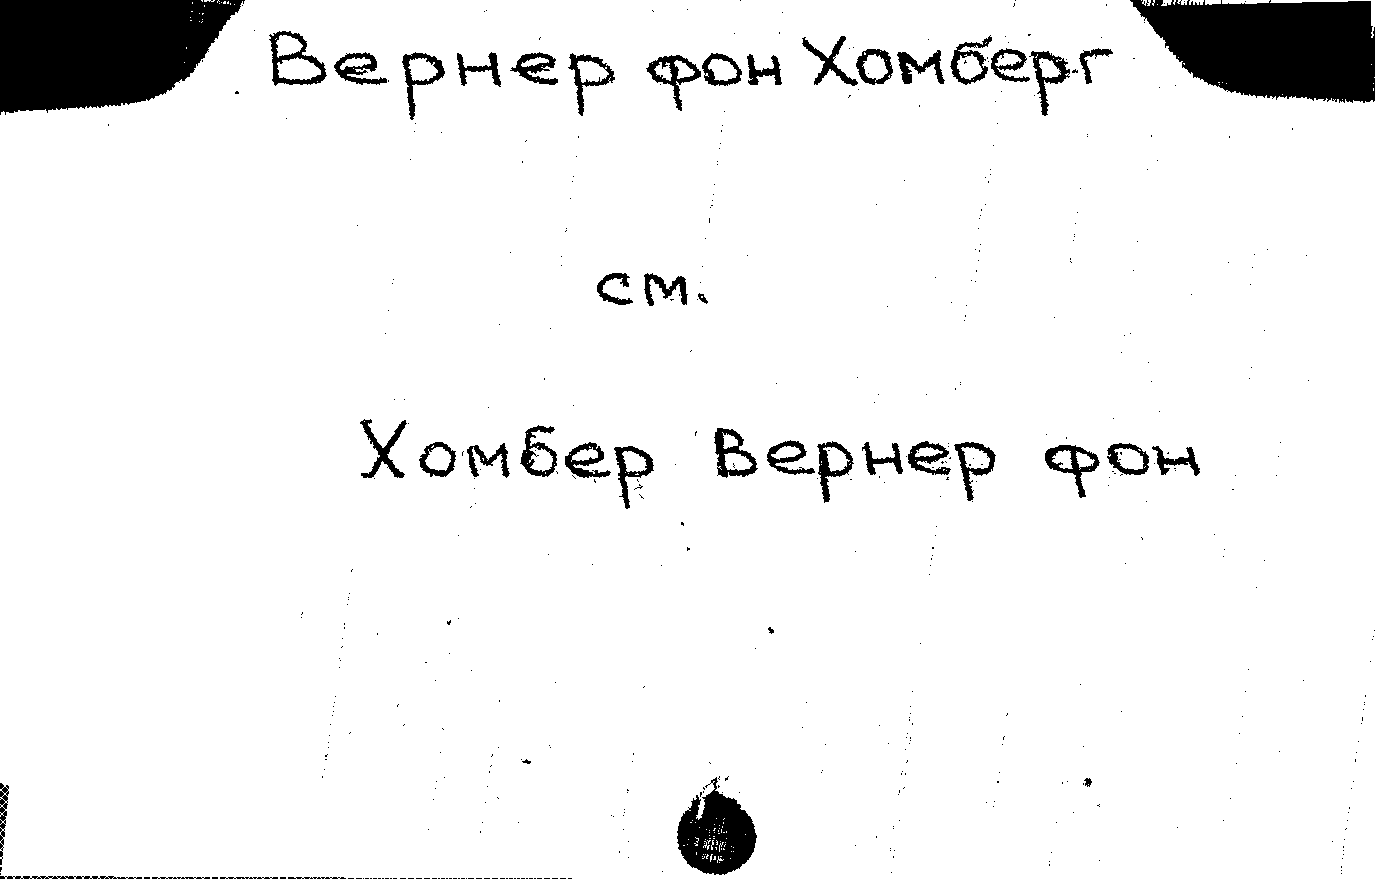 Вернер фон Хомберг
см.
Хомбер Вернер фон